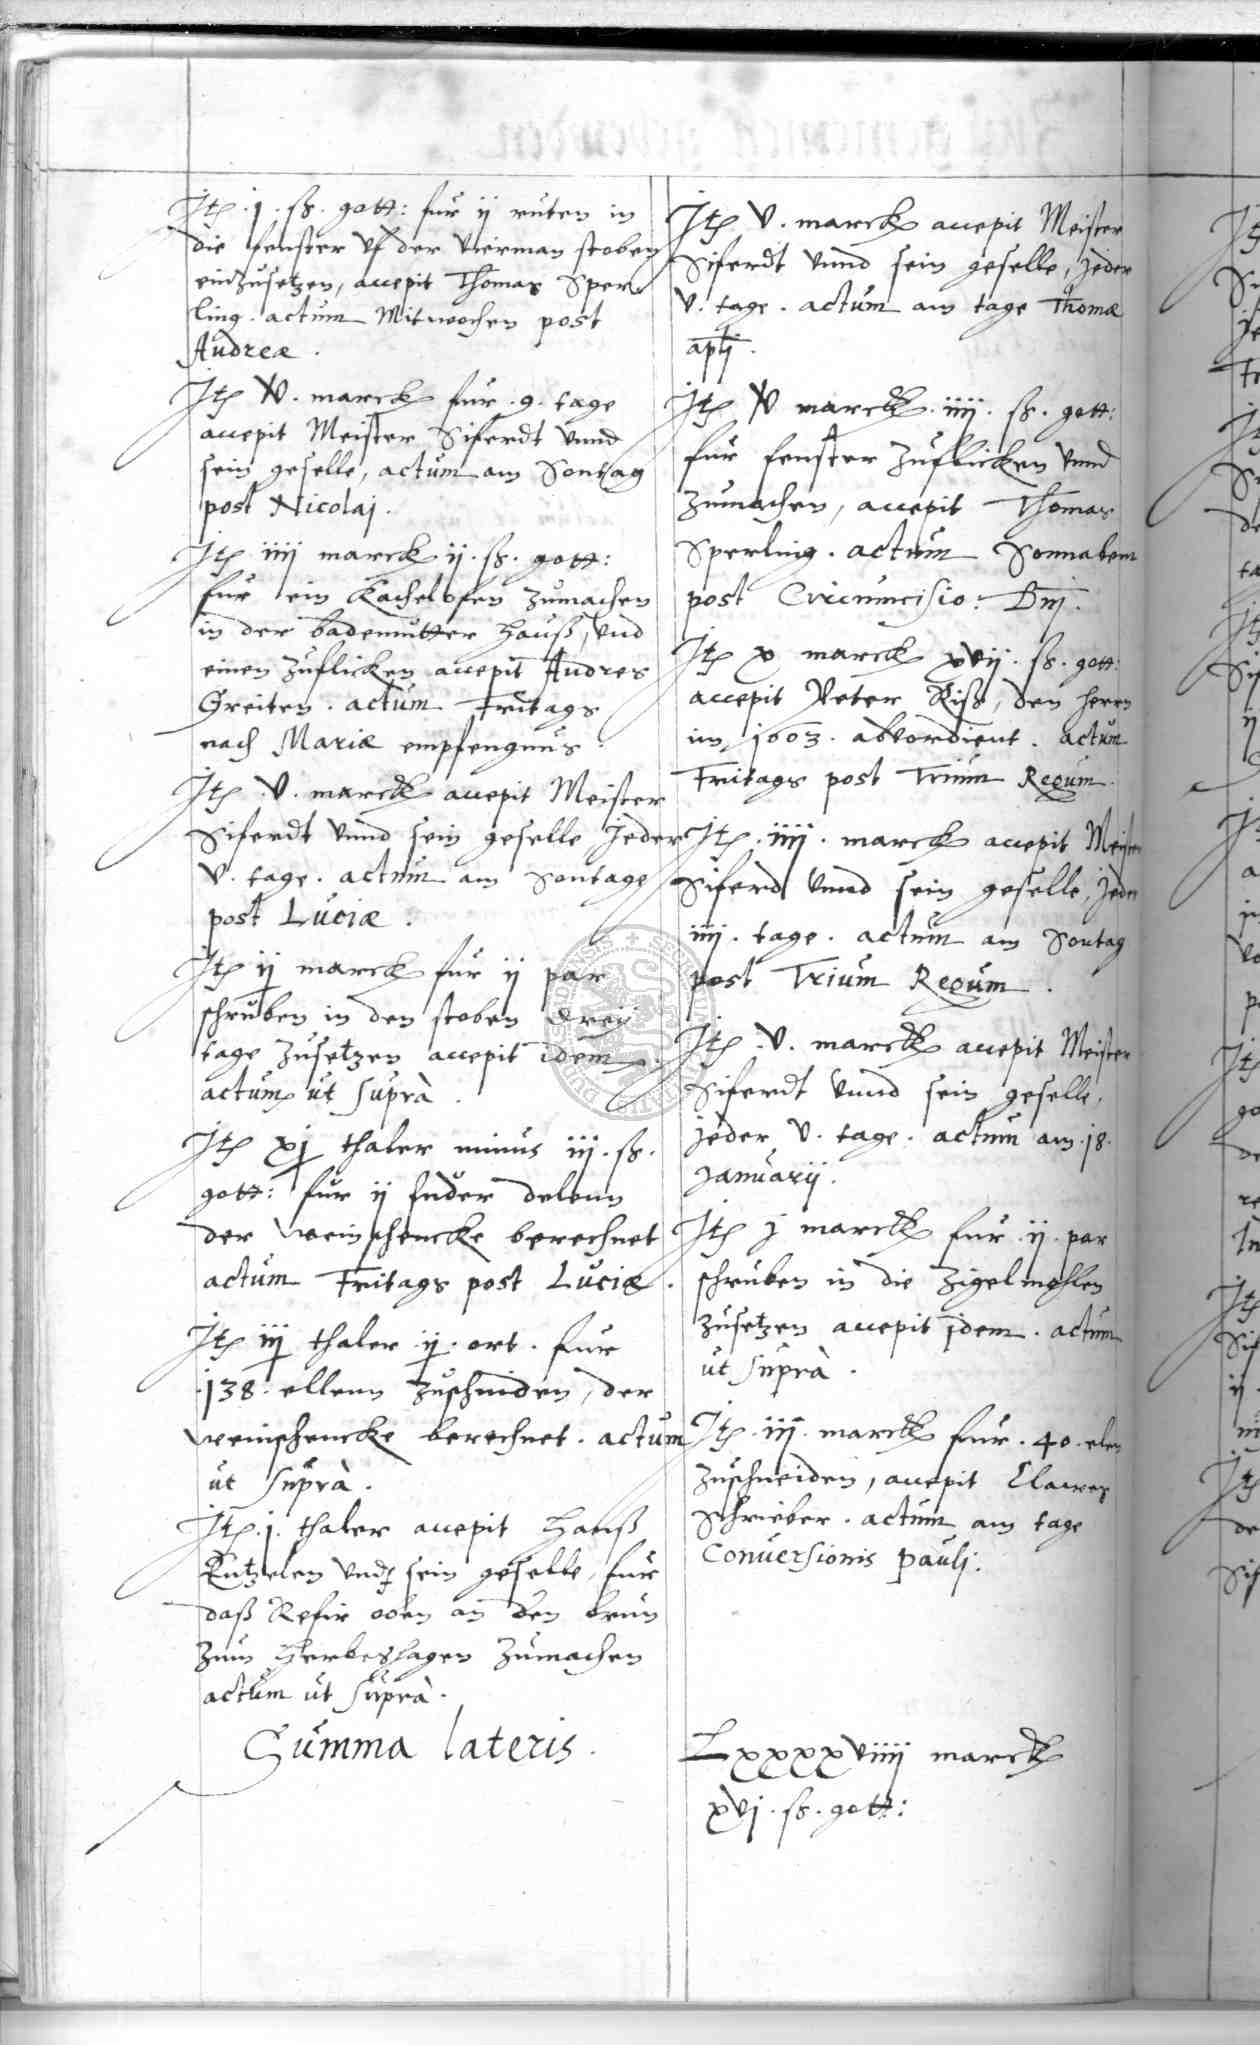 Itꝫ .j. ß. gott: fur ij ruten in
die fenster uf der vierman stoben
einzusetzen, accepit Thomas Sper-
ling. actum Mitwochen post
Andreæ.
Itꝫ marck fur .9. tage
accepit Meister Siferdt vnnd
sein geselle, actum am Sontag
post Nicolaj.
Itꝫ iiij marck ij. ß. gott:
fur ein Kachelofen zumachen
in der bademutter hauß, vnd
einen zuflicken accepit Andres
Greiten. actum Fritags
nach Mariæ empfengnus.
Itꝫ .V. marck accepit Meister
Siferdt vnnd sein geselle Jeder
V. tage. actum am Sontage
post Luciæ.
Itꝫ marck fur ij par
schruben in den stoben dreij
tage zusetzen accepit idem.
actum ut suprà.
Itꝫ xj thaler minus iij. ß.
gott: fur ij fuder delenn
der weinschencke berechnet
actum Fritags post Luciæ.
Itꝫ iij thaler ij. ort. fur
138. ellenn zuschniden, der
weinschencke berechnet. actum
ut suprà.
Itꝫ .j. thaler accepit Hanß
Kutzelen vnd sein geselle, fur
daß Refir oben an den brun
zum Herbeshagen zumachen
actum ut suprà.
Summa lateris.
Itꝫ V. marck accepit Meister
Siferdt vnnd sein geselle, Jeder
V. tage. actum am tage Thomæ
aptj.
Itꝫ marck. iiij. ß. gott:
fur fenster zuflicken vnnd
zumachen, accepit Thomas
Sperling. actum Sonnabent
post Circumcisio: Dnj.
Itꝫ x marck xvij. ß. gott:
accepit Peter Riß, den herrn
im 1603. abverdient. actum
Fritags post Trium Regum.
Itꝫ .iiij. marck accepit Meister
Siferd vnnd sein geselle, Jeder
iiij. tage. actum am Sontag
post Trium Regum.
Itꝫ .V. marck accepit Meister
Siferdt vnnd sein geselle,
jeder V. tage. actum am .18.
Januarij.
Itꝫ j marck fur .ij. par
schruben in die Zigelmohlen
zusetzen accepit idem. actum
ut suprà.
Itꝫ .iij. marck fur .40. elen
zuschneiden, accepit Clawes
Schrieber. actum am tage
Conversionis Paulj.
Lxxxxviiij marck
xvj. ß. gott: